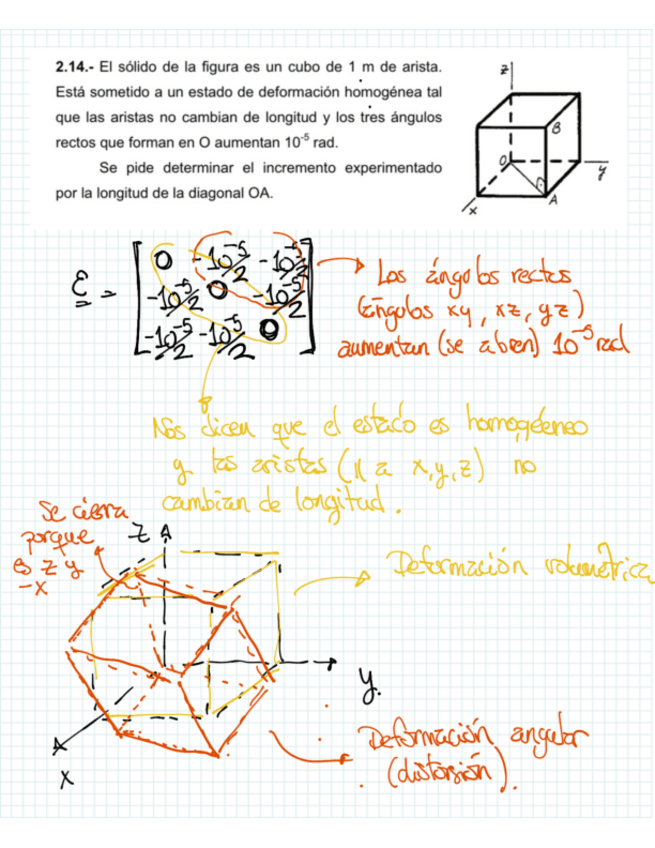 2.14.- El sólido de la figura es un cubo de 1 m de arista.
Está sometido a un estado de deformación homogénea tal
que las aristas no cambian de longitud y los tres ángulos
rectos que forman en O aumentan 10^-5 rad.
Se pide determinar el incremento experimentado
por la longitud de la diagonal OA.
z
B
O
y
A
x
0 -10^-5/2 -10^-5/2
ε = -10^-5/2 0 -10^-5/2
-10^-5/2 -10^-5/2 0
Los ángulos rectos
(ángulos xy, xz, yz)
aumentan (se abren) 10^-5 rad
Nos dicen que el estado es homogéeneo
y las aristas (// a x,y,z) no
cambian de longitud.
Se cierra
porque
es z y
-x
z
Deformación volumétrica
y.
x
Deformación angular
(distorsión).